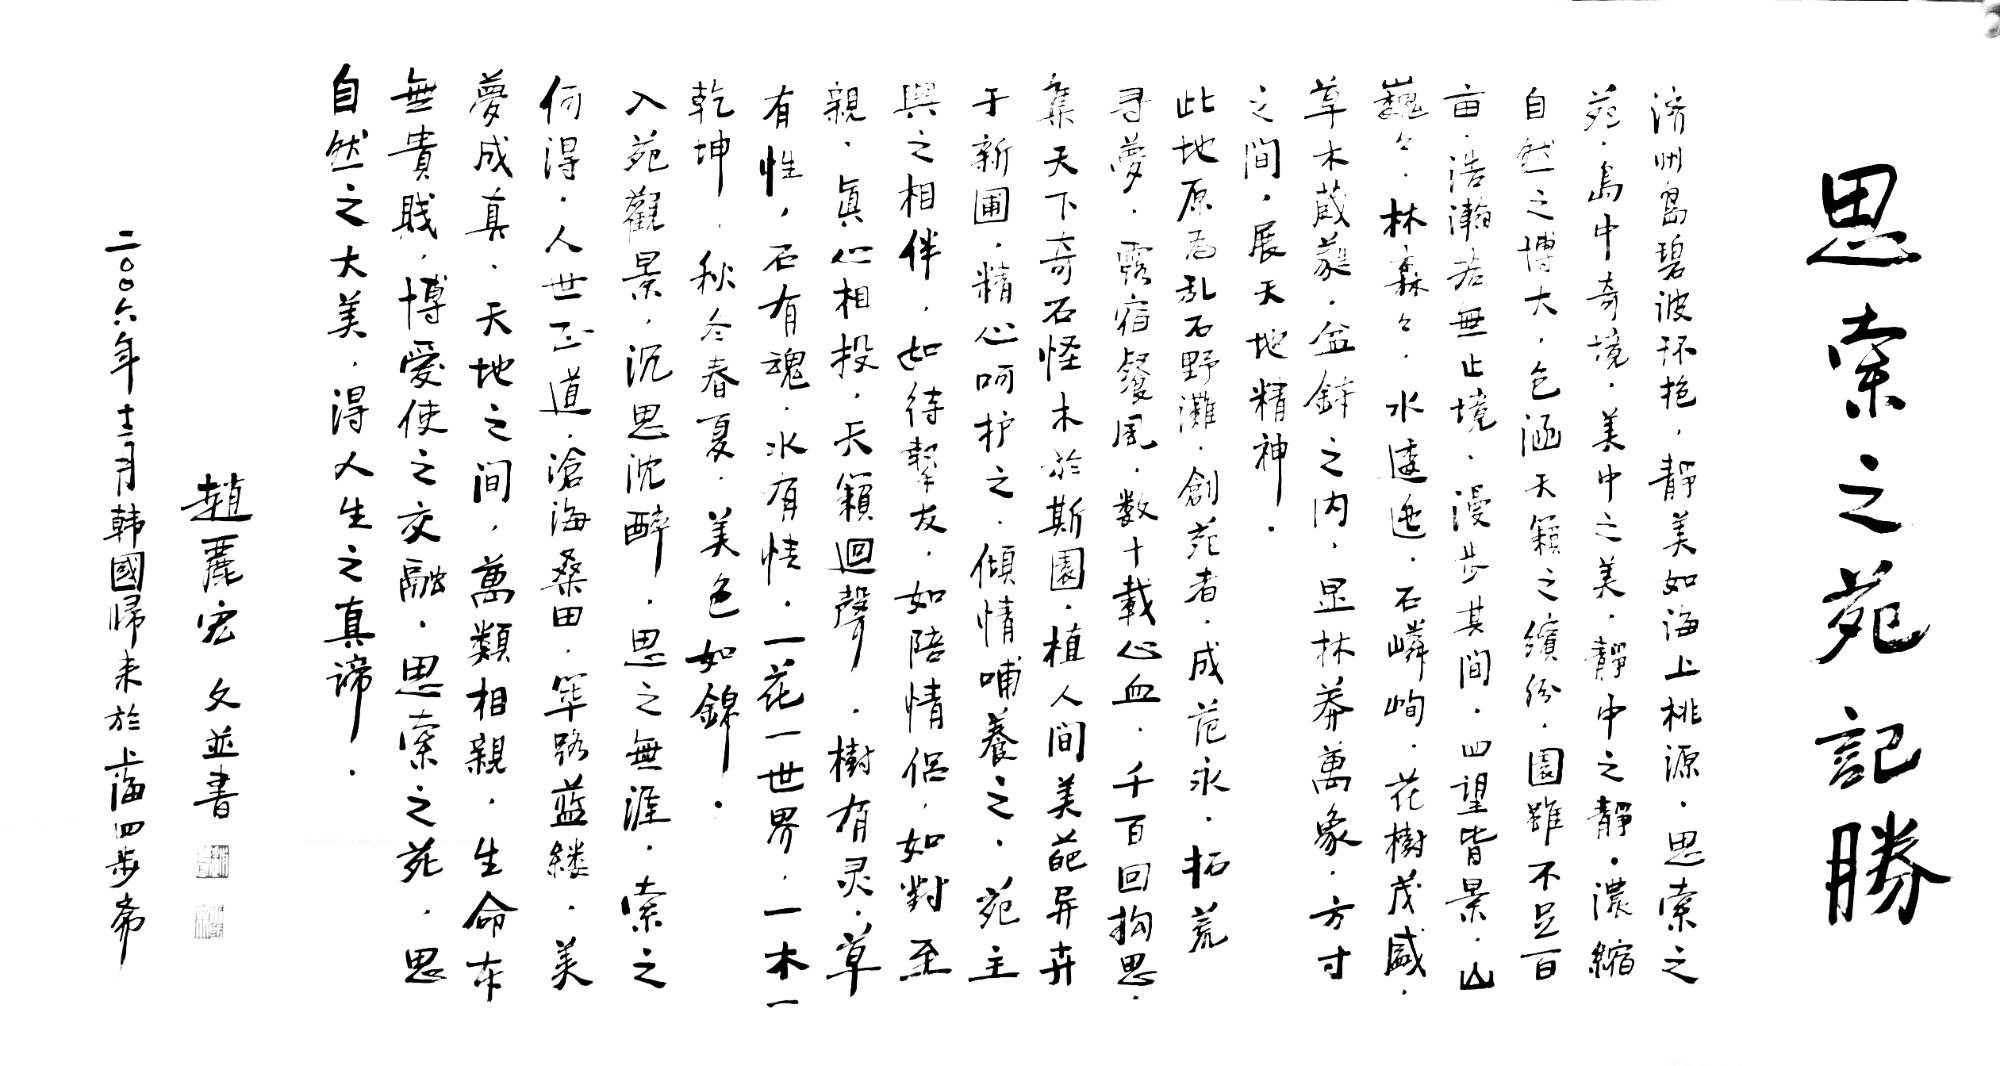 思索之苑記勝
济州島碧波环抱，靜美如海上桃源．思索之
苑．島中奇境．美中之美．靜中之靜．濃縮
自然之博大，包涵天籟之繽紛．園雖不足百
亩．浩瀚若無止境．漫步其间．四望皆景．山
巍々．林森々．水逶迤．石嶙峋．花樹茂盛．
草木葳蕤．盆鉢之内，显林莽萬象．方寸
之间，展天地精神．
此地原为乱石野灘．創苑者．成范永．拓荒
寻夢．露宿餐風．数十載心血．千百回构思．
集天下奇石怪木於斯園．植人间美葩异卉
于新圃．精心呵护之．傾情哺養之．苑主
與之相伴．如待摯友．如陪情侶．如對至
親．真心相投．天籟迴聲．樹有灵．草
有性，石有魂．水有情．一花一世界．一木一
乾坤．秋冬春夏．美色如錦．
入苑觀景，沉思沈醉．思之無涯．索之
何得．人世正道．滄海桑田．筚路蓝缕．美
夢成真．天地之间，萬類相親．生命本
無貴賎．博愛使之交融．思索之苑．思
自然之大美．得人生之真谛．
趙麗宏 文並書
二〇〇六年十二月韩國歸来於上海四步斋